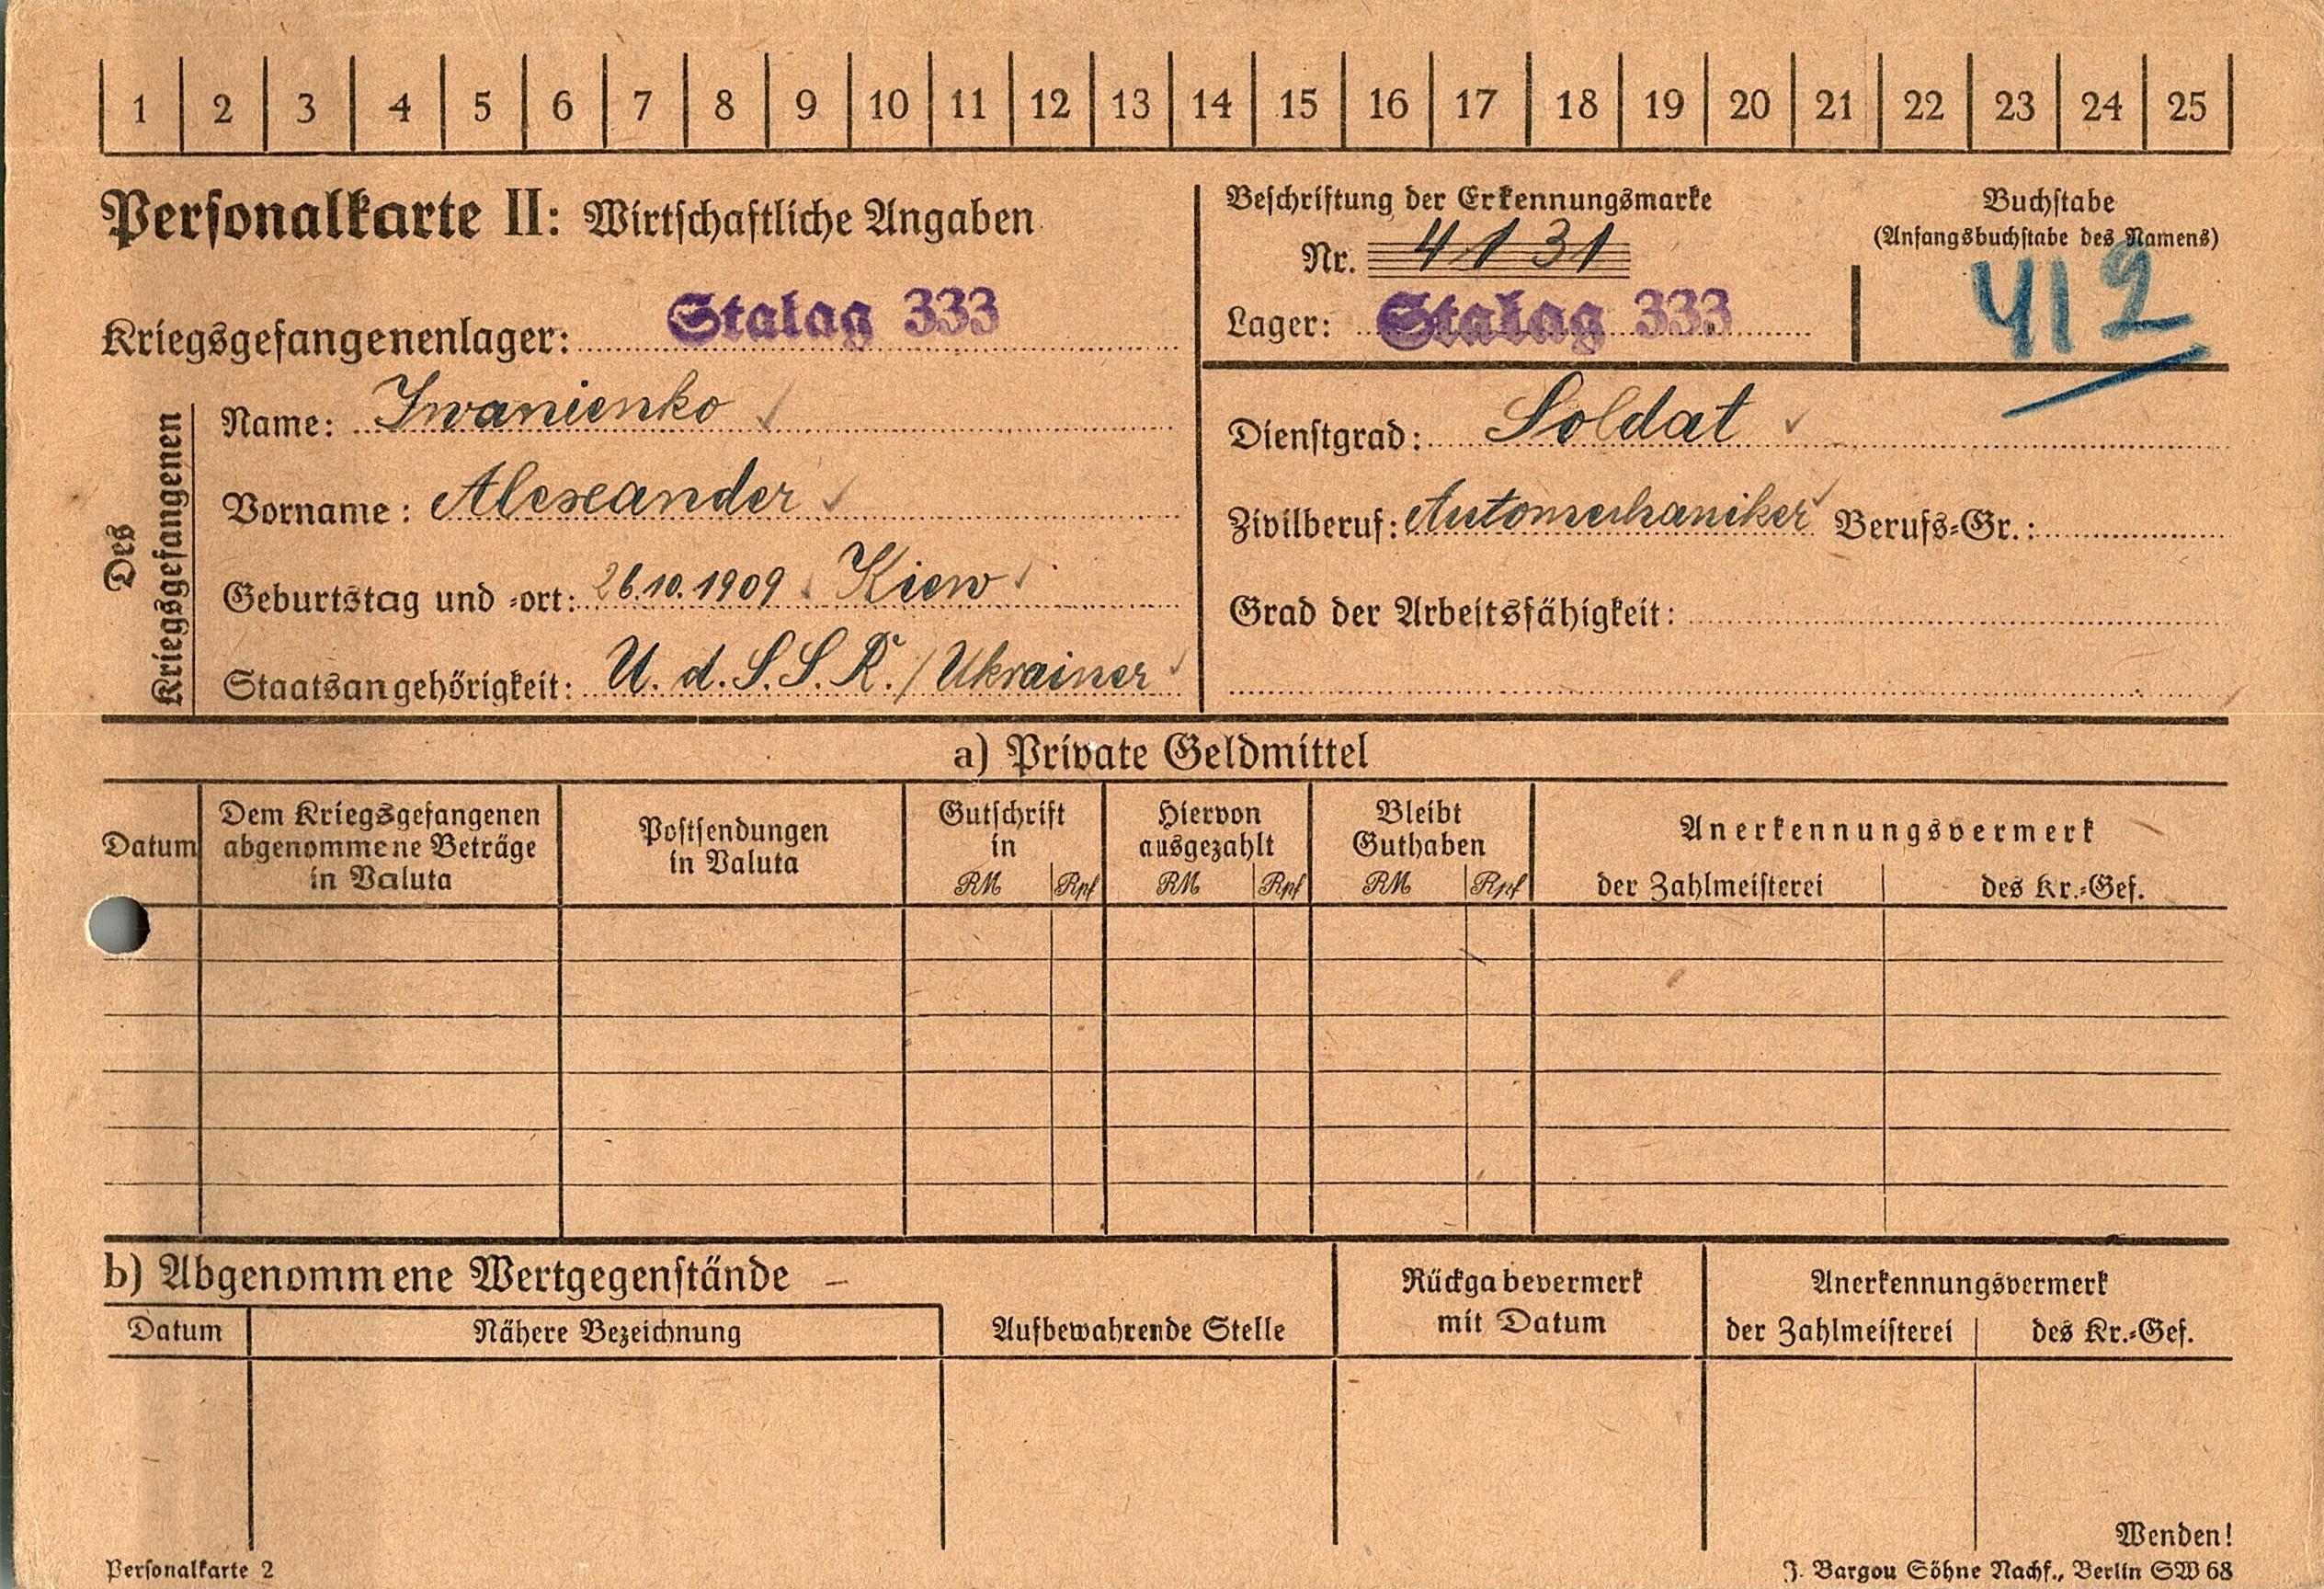 1 2 3 4 5 6 7 8 9 10 11 12 13 14 15 16 17 18 19 20 21 22 23 24 25
Personalkarte II: Wirtschaftliche Angaben
Kriegsgefangenenlager: Stalag 333
Beschriftung der Erkennungsmarke
Nr. 4131
Lager: Stalag 333
Buchstabe
(Anfangsbuchstabe des Namens)
412
Des
Kriegsgefangenen
Name: Iwanienko
Vorname: Alexander
Geburtstag und -ort: 26.10.1909 Kiew
Staatsangehörigkeit: U. d. S. S. R. / Ukrainer
Dienstgrad: Soldat
Zivilberuf: Automechaniker Berufs-Gr.:
Grad der Arbeitsfähigkeit:
a) Private Geldmittel
Datum
Dem Kriegsgefangenen
abgenommene Beträge
in Valuta
Postsendungen
in Valuta
Gutschrift
in
RM Rpf
Hiervon
ausgezahlt
RM Rpf
Bleibt
Guthaben
RM Rpf
Anerkennungsvermerk
der Zahlmeisterei
des Kr.-Gef.
b) Abgenommene Wertgegenstände –
Datum
Nähere Bezeichnung
Aufbewahrende Stelle
Rückgabevermerk
mit Datum
Anerkennungsvermerk
der Zahlmeisterei
des Kr.-Gef.
Wenden!
Personalkarte 2
J. Bargou Söhne Nachf., Berlin SW 68